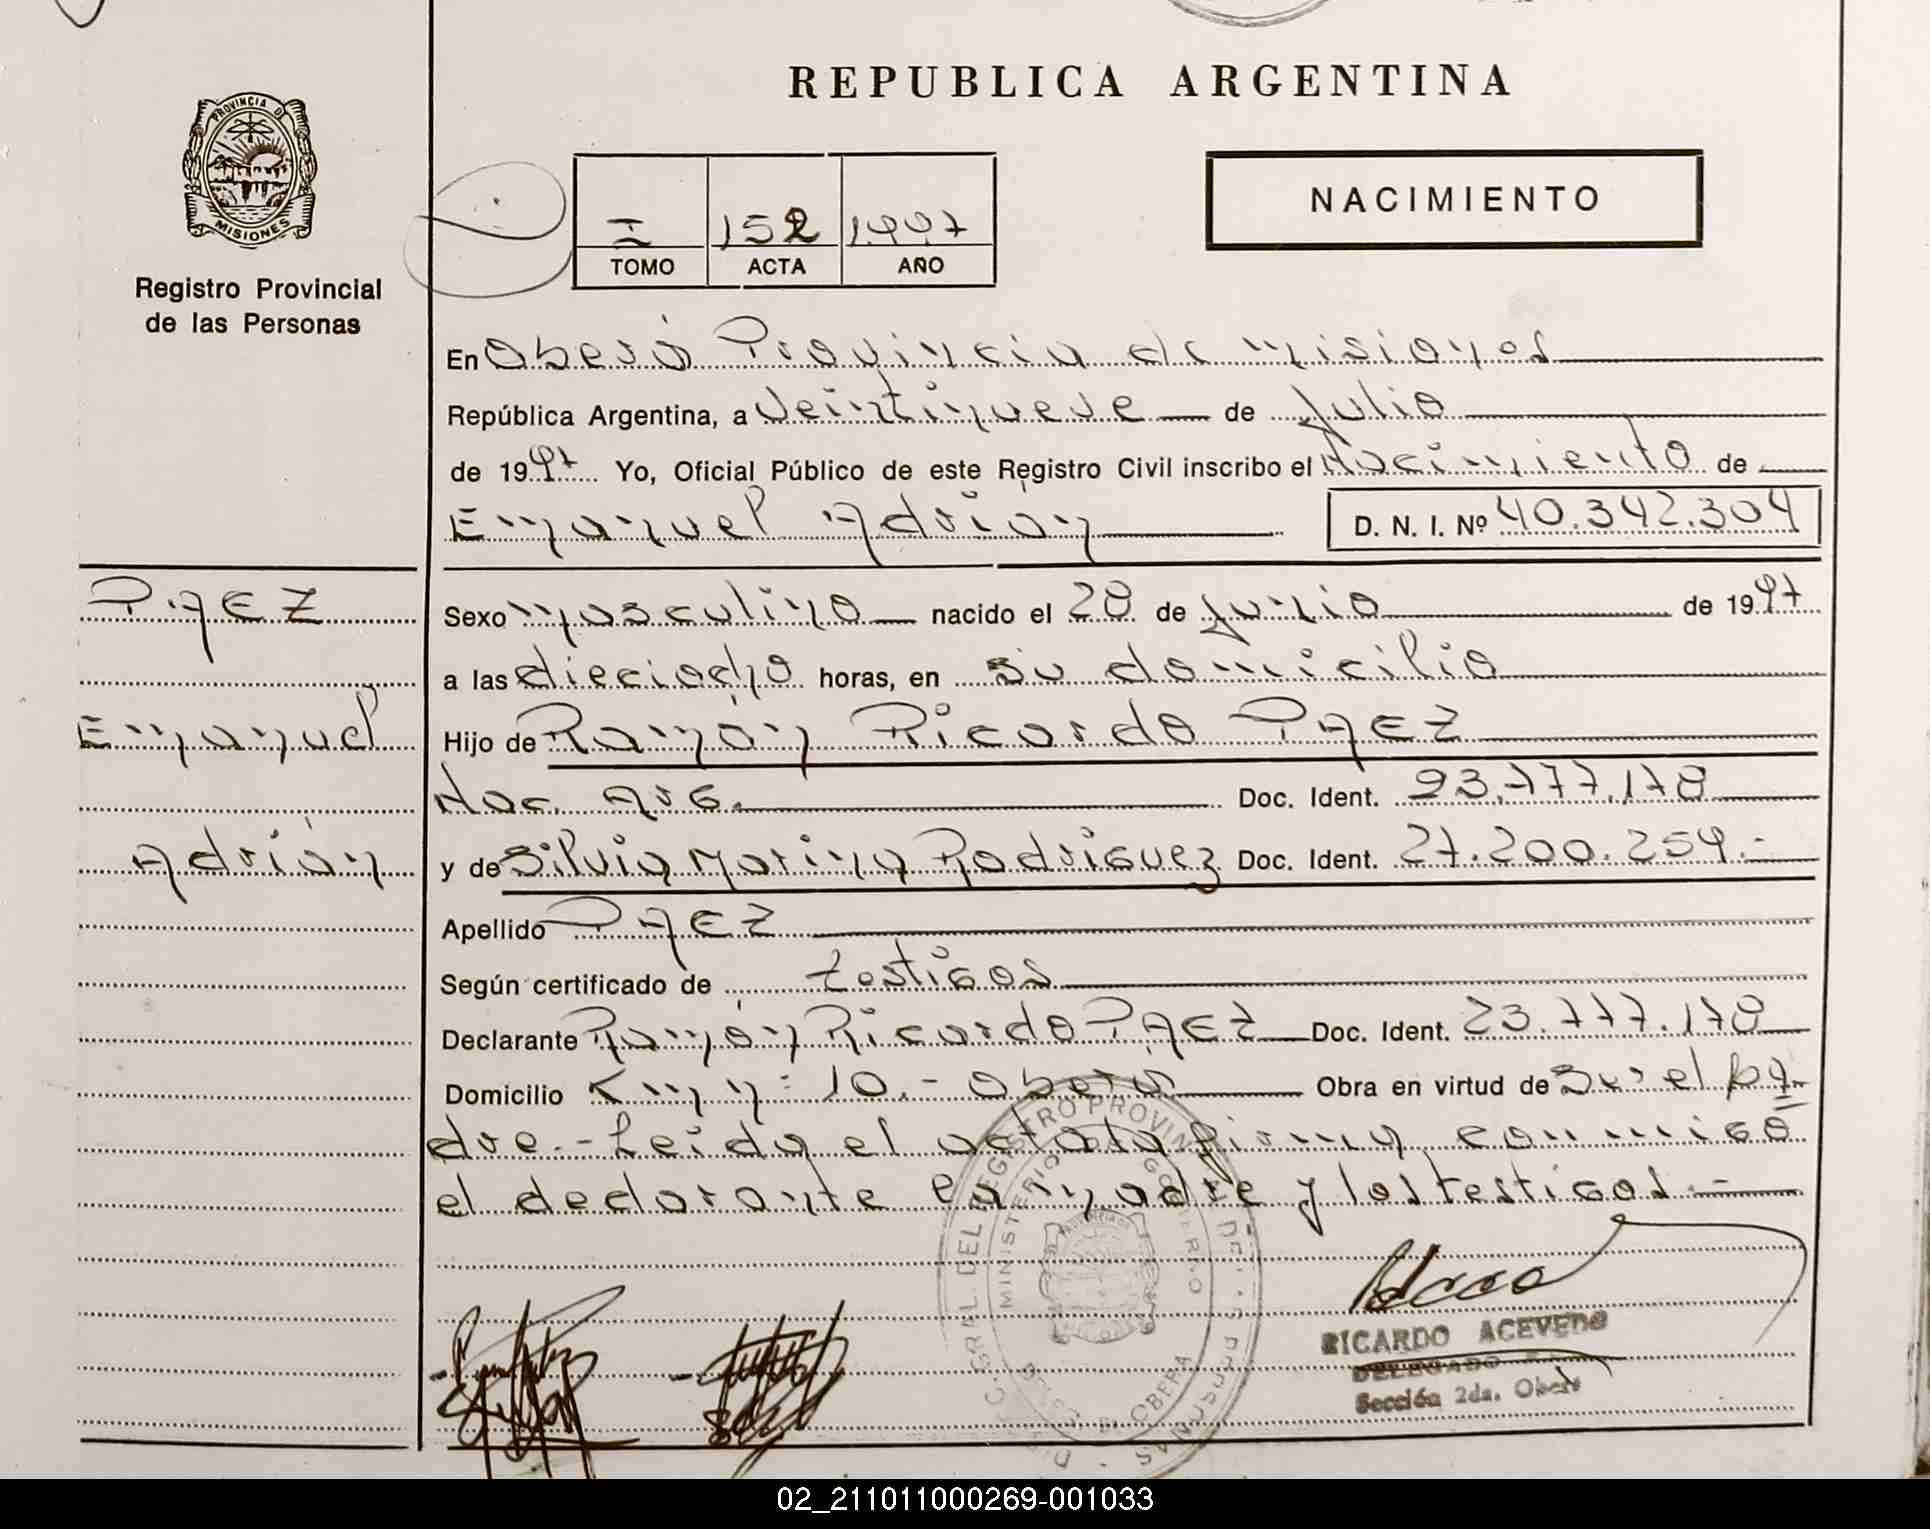 REPUBLICA ARGENTINA
PROVINCIA DE MISIONES
Registro Provincial
de las Personas
I 152 1997
TOMO ACTA AÑO
NACIMIENTO
En Oberá Provincia de Misiones
República Argentina, a Veintinueve de Julio
de 1997 Yo, Oficial Público de este Registro Civil inscribo el Nacimiento de
Emanuel Adrián D. N. I. Nº 40.342.304
PAEZ
Emanuel
Adrián
Sexo masculino nacido el 28 de Junio de 1997
a las dieciocho horas, en su domicilio
Hijo de Ramón Ricardo PAEZ
Nac. Arg. Doc. Ident. 23.777.178
y de Silvia Marina Rodriguez Doc. Ident. 27.200.254.-
Apellido PAEZ
Según certificado de testigos
Declarante Ramón Ricardo PAEZ Doc. Ident. 23.777.178
Domicilio Km 10.- Oberá Obra en virtud de Ser el pa-
dre.- Leida el acta la firma conmigo
el declarante la madre y los testigos.-
RICARDO ACEVEDO
DELEGADO
Sección 2da. Oberá
02_211011000269-001033